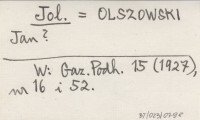 Jol. = OLSZOWSKI
Jan?
W: Gaz. Podh. 15 (1927),
nr 16 i 52.